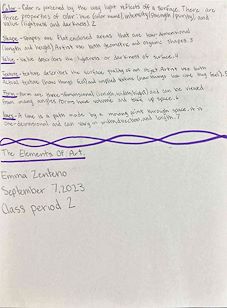 Color - Color is produced by the way light reflects off a surface. There are
three properties of color: hue (color name), intensity (strength / purity), and
value (lightness and darkness). 2
Shape - Shapes are flat, enclosed areas that are two dimentional
(length and height). Artist use both geometric and organic shapes. 3
Value - Value describes the lightness or darkness of surface. 4
Texture - Texture describes the surface quality of an object. Artist use both
actual texture (how things feel) and implied texture (how things look like they feel). 5
Form - Form are three dimensional (length, width, height) and can be viewed
from many angles. Forms have volume and take up space. 6
Line - A line is a path made by a moving point through space. It is
one-dimensional and can vary in width, direction, and length. 7
The Elements Of Art
Emma Zenteno
September 7, 2023
Class period 2